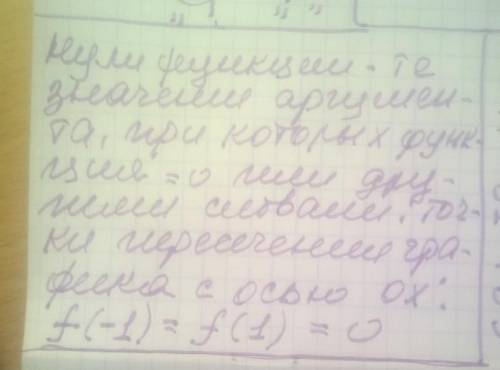 Нули функции - те
значения аргумен-
та, при которых функ-
ция = 0 или дру-
гими словами, точ-
ки пересечения гра-
фика с осью ох:
f(-1) = f(1) = 0